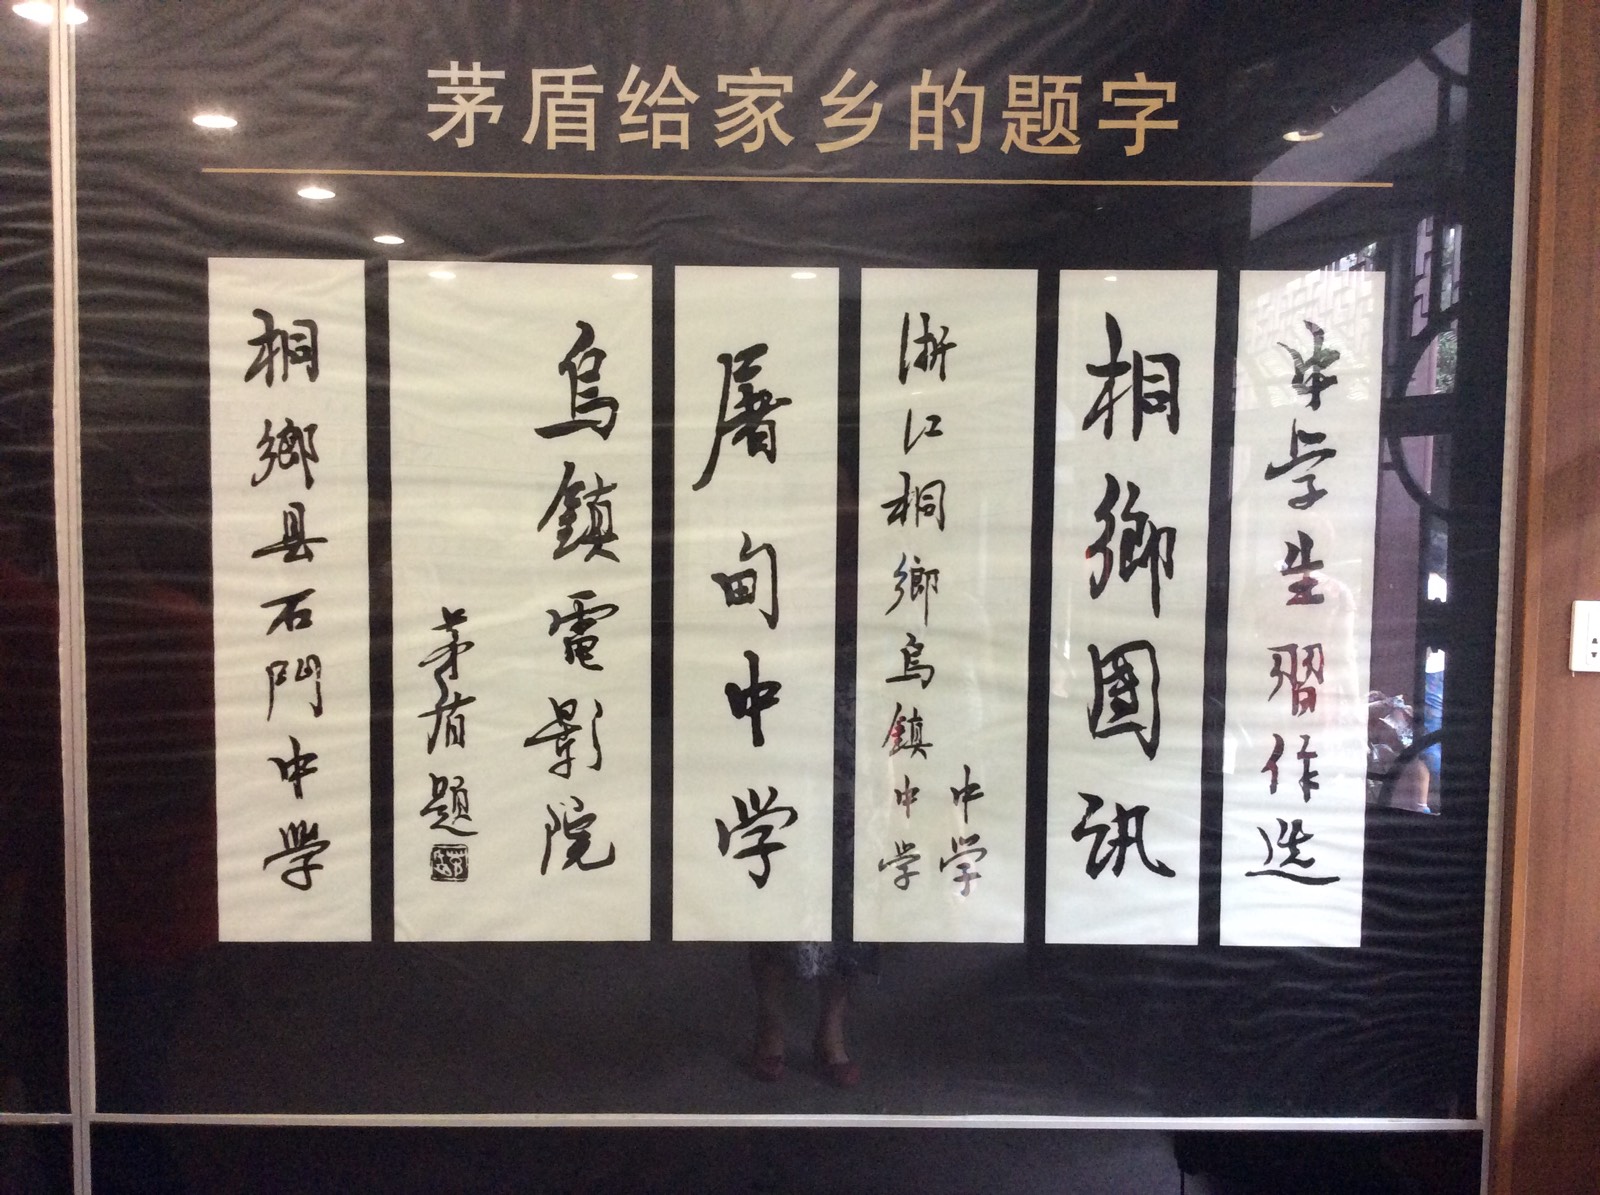 茅盾给家乡的题字
中学生習作选
桐鄉图讯
浙江桐鄉烏鎮中学
中学
屠甸中学
烏鎮電影院
茅盾題
桐鄉县石門中學